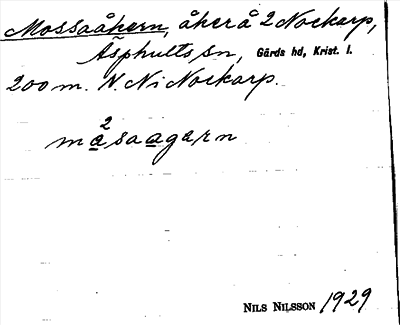 Mossaåkern, åker å 2 Nockarp,
Asphults sn, Gärds hd, Krist. l.
200 m. N. Ni Nockarp.
2
måsaagarn
NILS NILSSON 1929